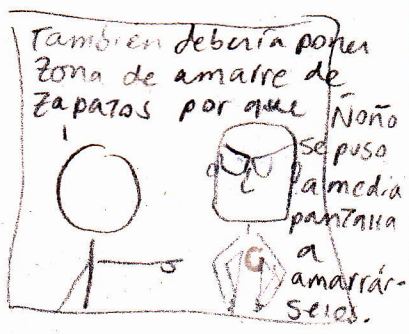 Tambien debería poner
zona de amarre de
zapatos por que Ñoño
se puso
a media
pantalla
a
amarrár-
selos.
G